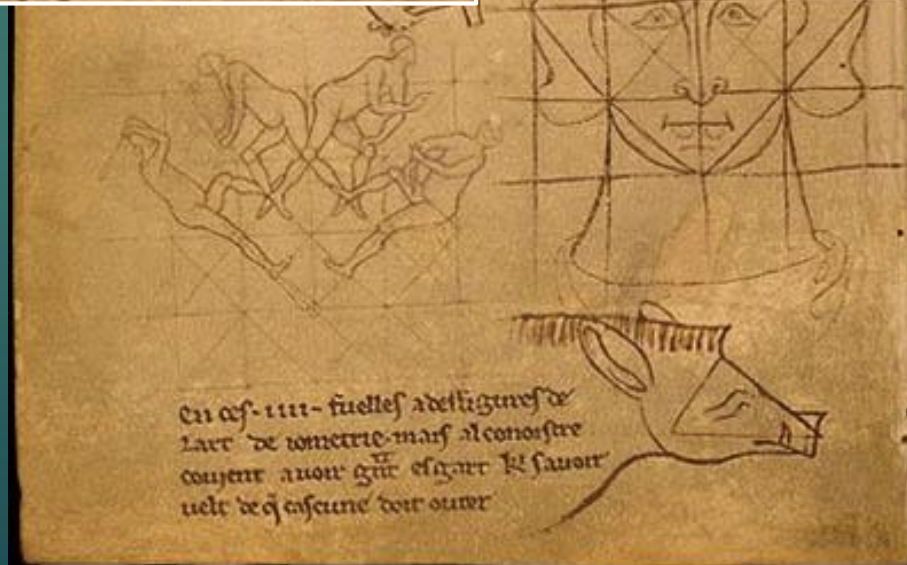 En ces .iiii. fuelles a des figures de
lart de iometrie. mais al conoistre
couient auoir grãt esgart ki sauoir
uelt de q̃ cascune doit ourer